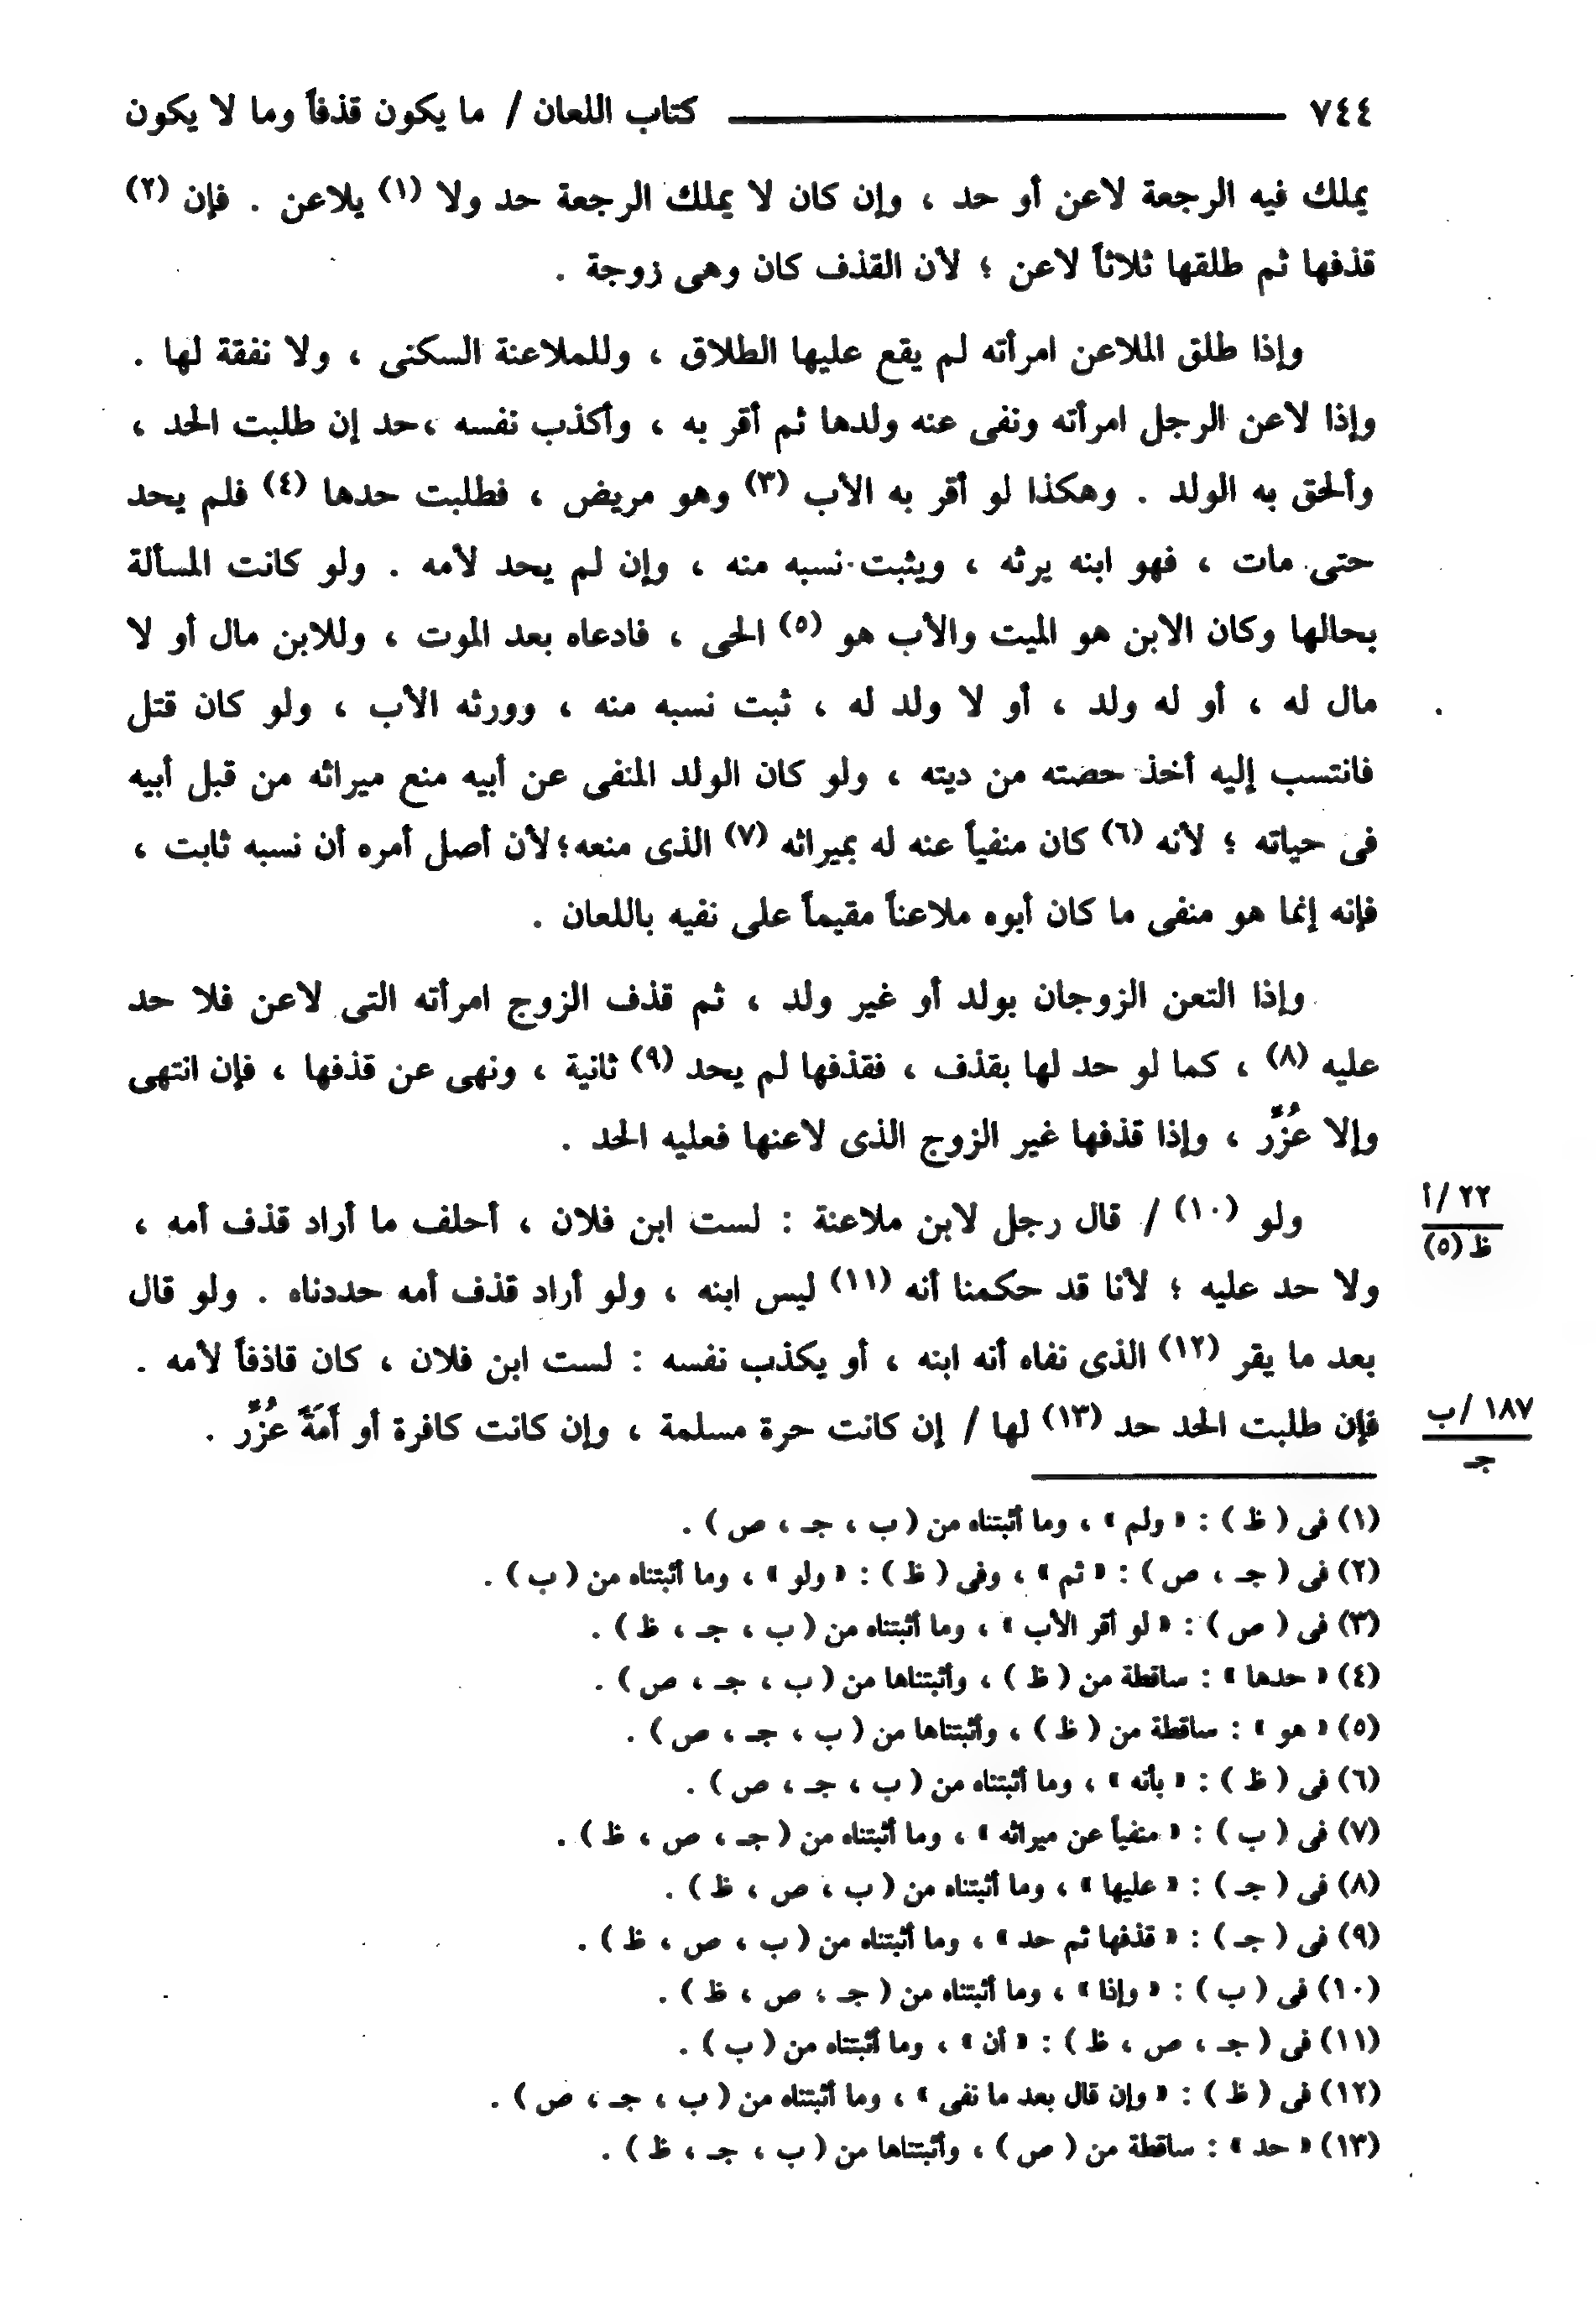 ٧٤٤ كتاب اللعان / ما يكون قذفاً وما لا يكون
يملك فيه الرجعة لاعن أو حد ، وإن كان لا يملك الرجعة حد ولا (١) يلاعن . فإن (٢)
قذفها ثم طلقها ثلاثاً لاعن ؛ لأن القذف كان وهى زوجة .
وإذا طلق الملاعن امرأته لم يقع عليها الطلاق ، وللملاعنة السكنى ، ولا نفقة لها .
وإذا لاعن الرجل امرأته ونفى عنه ولدها ثم أقر به ، وأكذب نفسه ، حد إن طلبت الحد ،
وألحق به الولد . وهكذا لو أقر به الأب (٣) وهو مريض ، فطلبت حدها (٤) فلم يحد
حتى مات ، فهو ابنه يرثه ، ويثبت نسبه منه ، وإن لم يحد لأمه . ولو كانت المسألة
بحالها وكان الابن هو الميت والأب هو (٥) الحى ، فادعاه بعد الموت ، وللابن مال أو لا
مال له ، أو له ولد ، أو لا ولد له ، ثبت نسبه منه ، وورثه الأب ، ولو كان قتل
فانتسب إليه أخذ حصته من ديته ، ولو كان الولد المنفى عن أبيه منع ميراثه من قبل أبيه
فى حياته ؛ لأنه (٦) كان منفياً عنه له بميراثه (٧) الذى منعه؛ لأن أصل أمره أن نسبه ثابت ،
فإنه إنما هو منفى ما كان أبوه ملاعناً مقيماً على نفيه باللعان .
وإذا التعن الزوجان بولد أو غير ولد ، ثم قذف الزوج امرأته التى لاعن فلا حد
عليه (٨) ، كما لو حد لها بقذف ، فقذفها لم يحد (٩) ثانية ، ونهى عن قذفها ، فإن انتهى
وإلا عُزِّر ، وإذا قذفها غير الزوج الذى لاعنها فعليه الحد .
ولو (١٠) / قال رجل لابن ملاعنة : لست ابن فلان ، أحلف ما أراد قذف أمه ،
٢٢ /أ
ظ (٥)
ولا حد عليه ؛ لأنا قد حكمنا أنه (١١) ليس ابنه ، ولو أراد قذف أمه حددناه . ولو قال
بعد ما يقر (١٢) الذى نفاه أنه ابنه ، أو يكذب نفسه : لست ابن فلان ، كان قاذفاً لأمه .
فإن طلبت الحد حد (١٣) لها / إن كانت حرة مسلمة ، وإن كانت كافرة أو أَمَةً عُزِّر .
١٨٧ /ب
جـ
(١) فى ( ظ ) : « ولم » ، وما أثبتناه من ( ب ، جـ ، ص ) .
(٢) فى ( جـ ، ص ) : « ثم » ، وفى ( ظ ) : « ولو » ، وما أثبتناه من ( ب ) .
(٣) فى ( ص ) : « لو أقر الأب » ، وما أثبتناه من ( ب ، جـ ، ظ ) .
(٤) « حدها » : ساقطة من ( ظ ) ، وأثبتناها من ( ب ، جـ ، ص ) .
(٥) « هو » : ساقطة من ( ظ ) ، وأثبتناها من ( ب ، جـ ، ص ) .
(٦) فى ( ظ ) : « بأنه » ، وما أثبتناه من ( ب ، جـ ، ص ) .
(٧) فى ( ب ) : « منفياً عن ميراثه » ، وما أثبتناه من ( جـ ، ص ، ظ ) .
(٨) فى ( جـ ) : « عليها » ، وما أثبتناه من ( ب ، ص ، ظ ) .
(٩) فى ( جـ ) : « قذفها ثم حد » ، وما أثبتناه من ( ب ، ص ، ظ ) .
(١٠) فى ( ب ) : « وإذا » ، وما أثبتناه من ( جـ ، ص ، ظ ) .
(١١) فى ( جـ ، ص ، ظ ) : « أن » ، وما أثبتناه من ( ب ) .
(١٢) فى ( ظ ) : « وإن قال بعد ما نفى » ، وما أثبتناه من ( ب ، جـ ، ص ) .
(١٣) « حد » : ساقطة من ( ص ) ، وأثبتناها من ( ب ، جـ ، ظ ) .